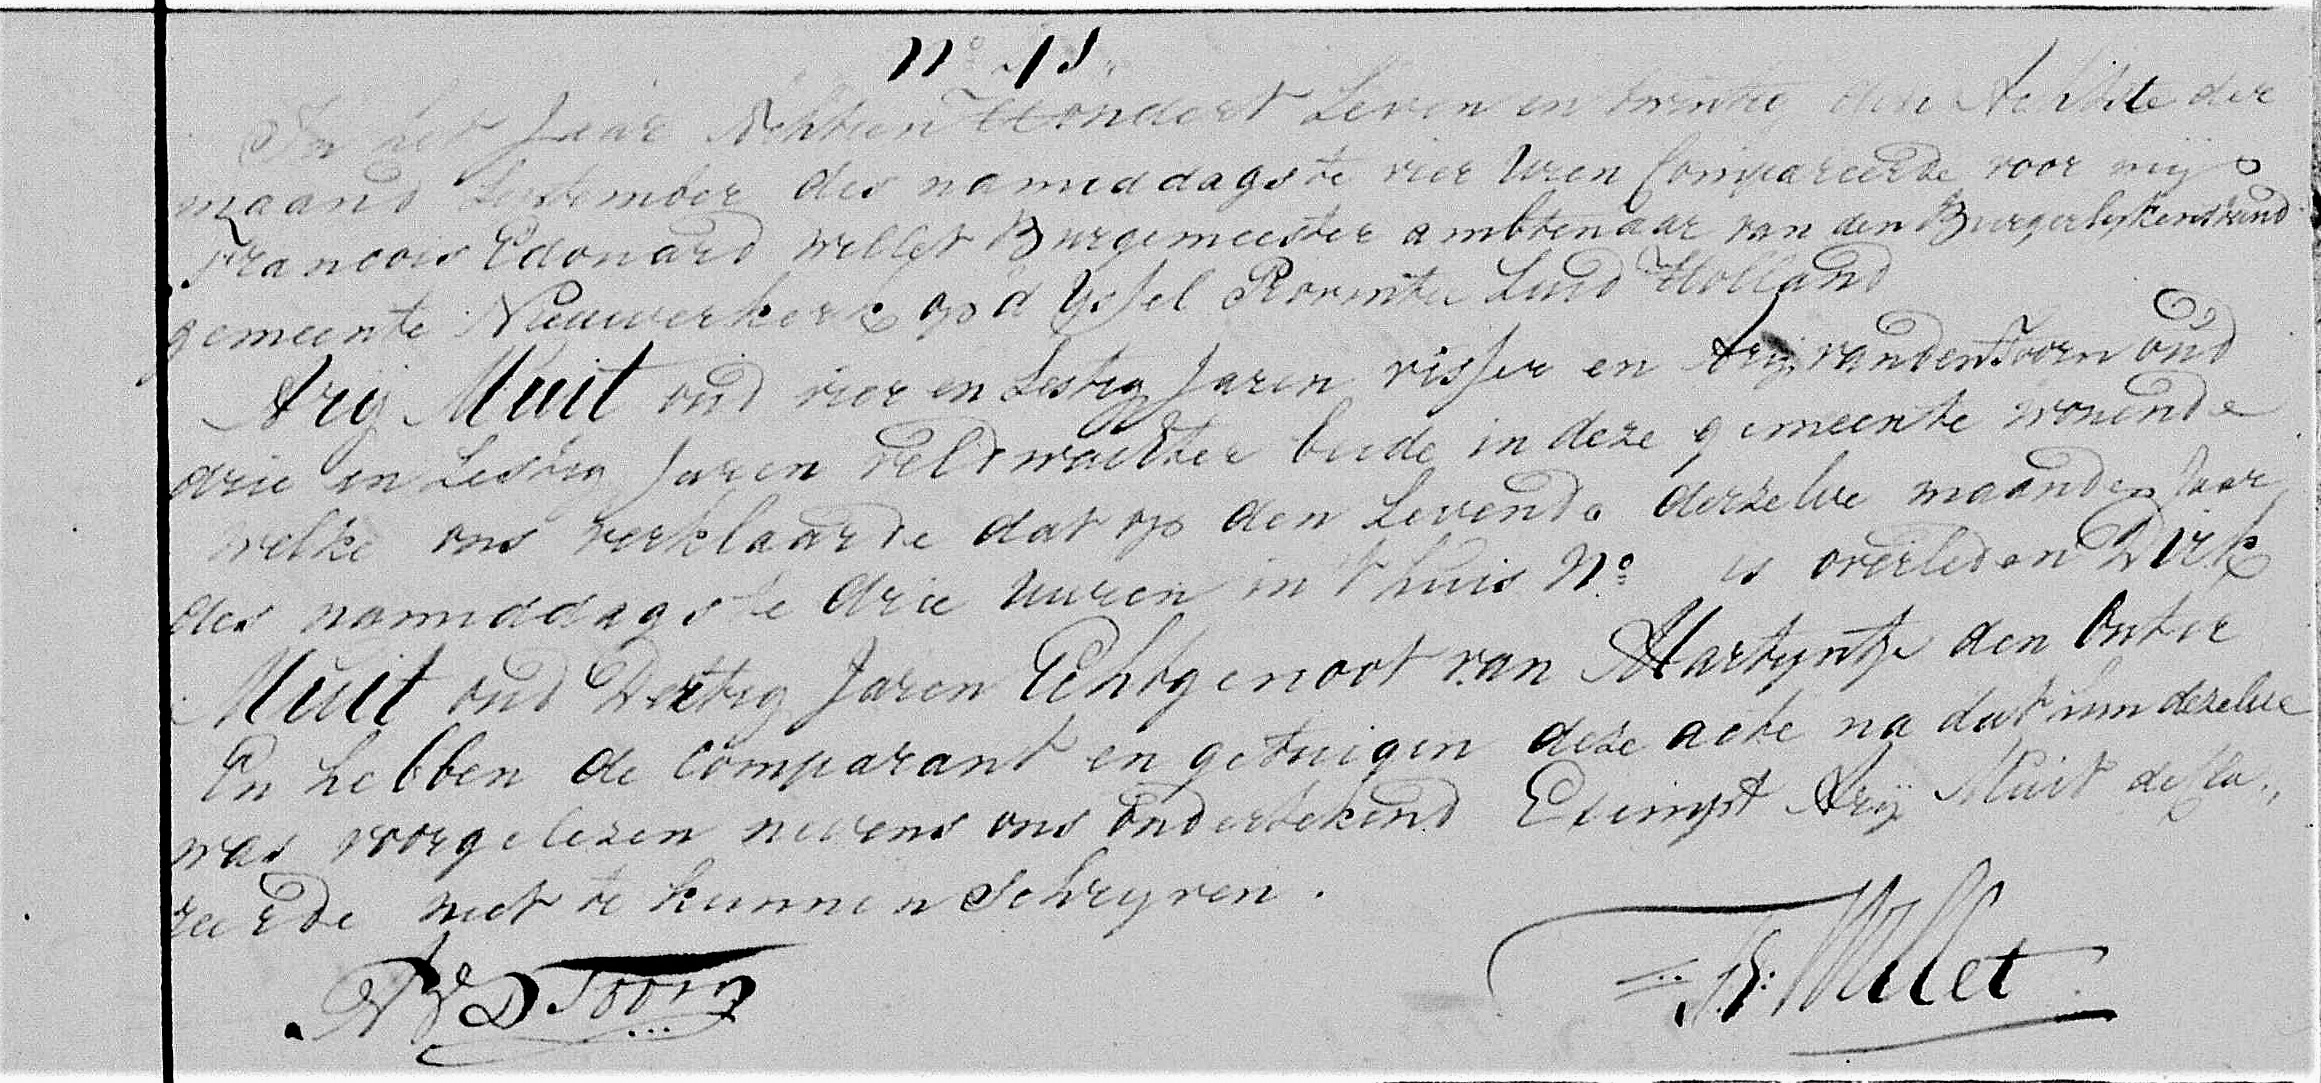 No 15.
In het Jaar Achtien Hondert Seven en twintig den Achtste der
maand September des namiddags te vier Uren Compareerde voor mij
Francois Edouard Willet Burgemeester ambtenaar van den Burgerlyken stand
gemeente Nieuwerkerk op d Yssel Provintie Zuid Holland
Arij Muit oud vier en Sestig Jaren visser en Arij van den Toorn oud
drie en Sestig Jaren veldwachter beide in deze gemeente wonende
welke ons verklaarde dat op den Sevende derzelve maand en Jaar
des namiddags te drie uuren in 't huis No is overleden Dirk
Muit oud Dertig Jaren Echtgenoot van Martyntje den
En hebben de comparant en getuigen deze acte na dat hun dezelve
was voorgelezen nevens ons ondertekend Exempt Arij Muit decla„
reerde niet te kunnen Schryven.
A V D Toorn
F. E. Willet